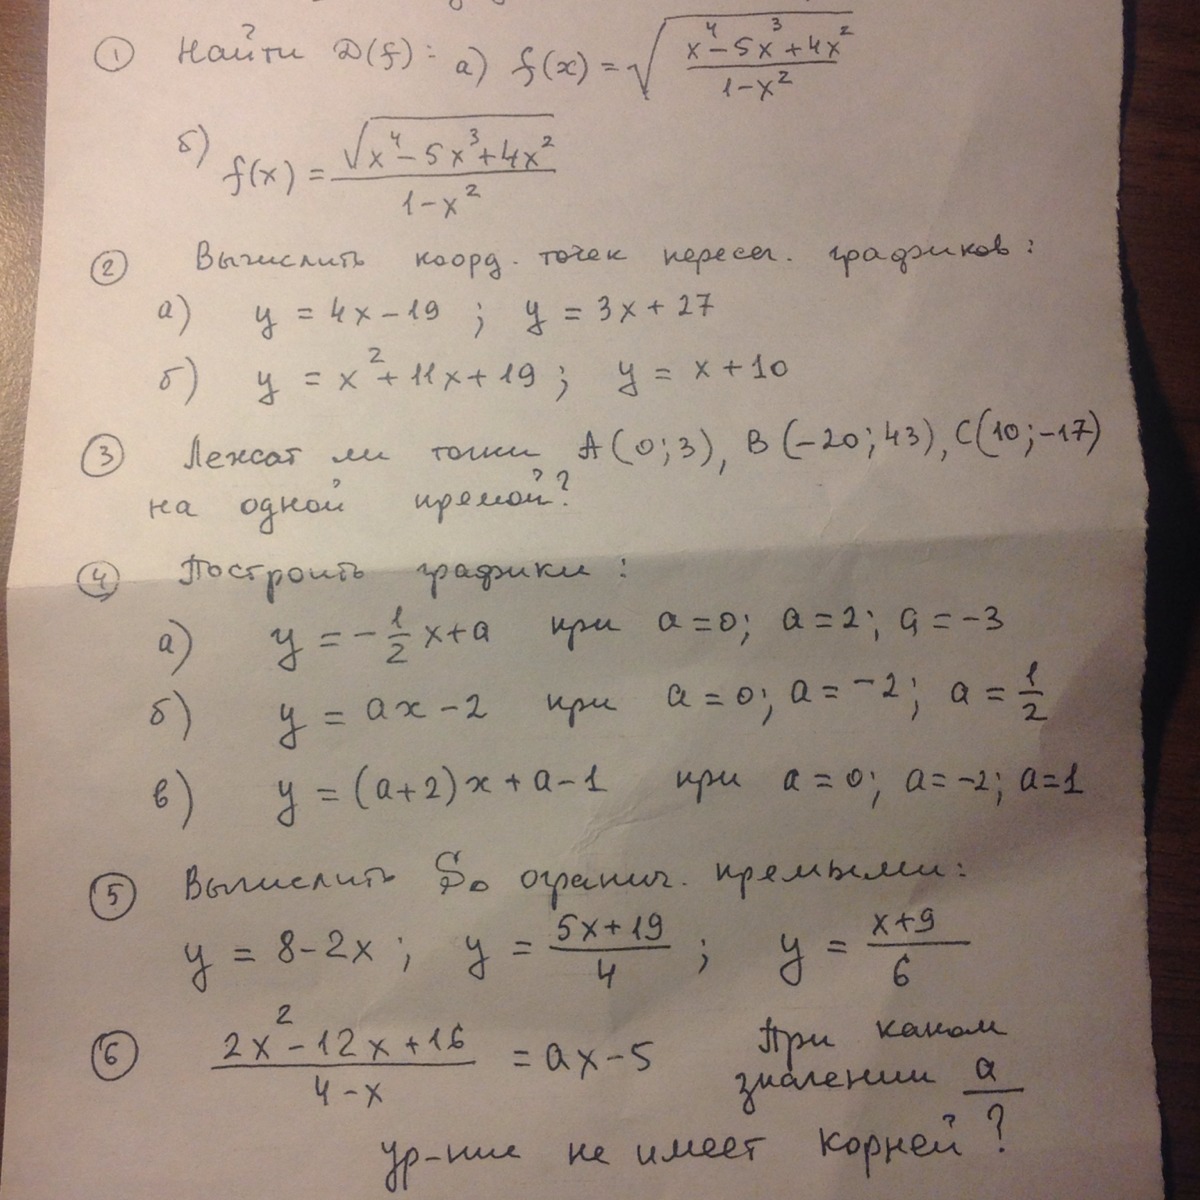 ① Найти D(f): а) f(x) = √((x⁴-5x³+4x²)/(1-x²))
б) f(x) = √(x⁴-5x³+4x²)/(1-x²)
② Вычислить коорд. точек пересеч. графиков:
а) y = 4x-19 ; y = 3x+27
б) y = x²+11x+19; y = x+10
③ Лежат ли точки A(0;3), B(-20;43), C(10;-17)
на одной прямой?
④ Построить графики:
а) y = -1/2 x+a при a=0; a=2; a=-3
б) y = ax-2 при a=0; a=-2; a=1/2
в) y = (a+2)x+a-1 при a=0; a=-2; a=1
⑤ Вычислить S. огранич. прямыми:
y = 8-2x ; y = (5x+19)/4 ; y = (x+9)/6
⑥ (2x²-12x+16)/(4-x) = ax-5 При каком
значении a
ур-ние не имеет корней?